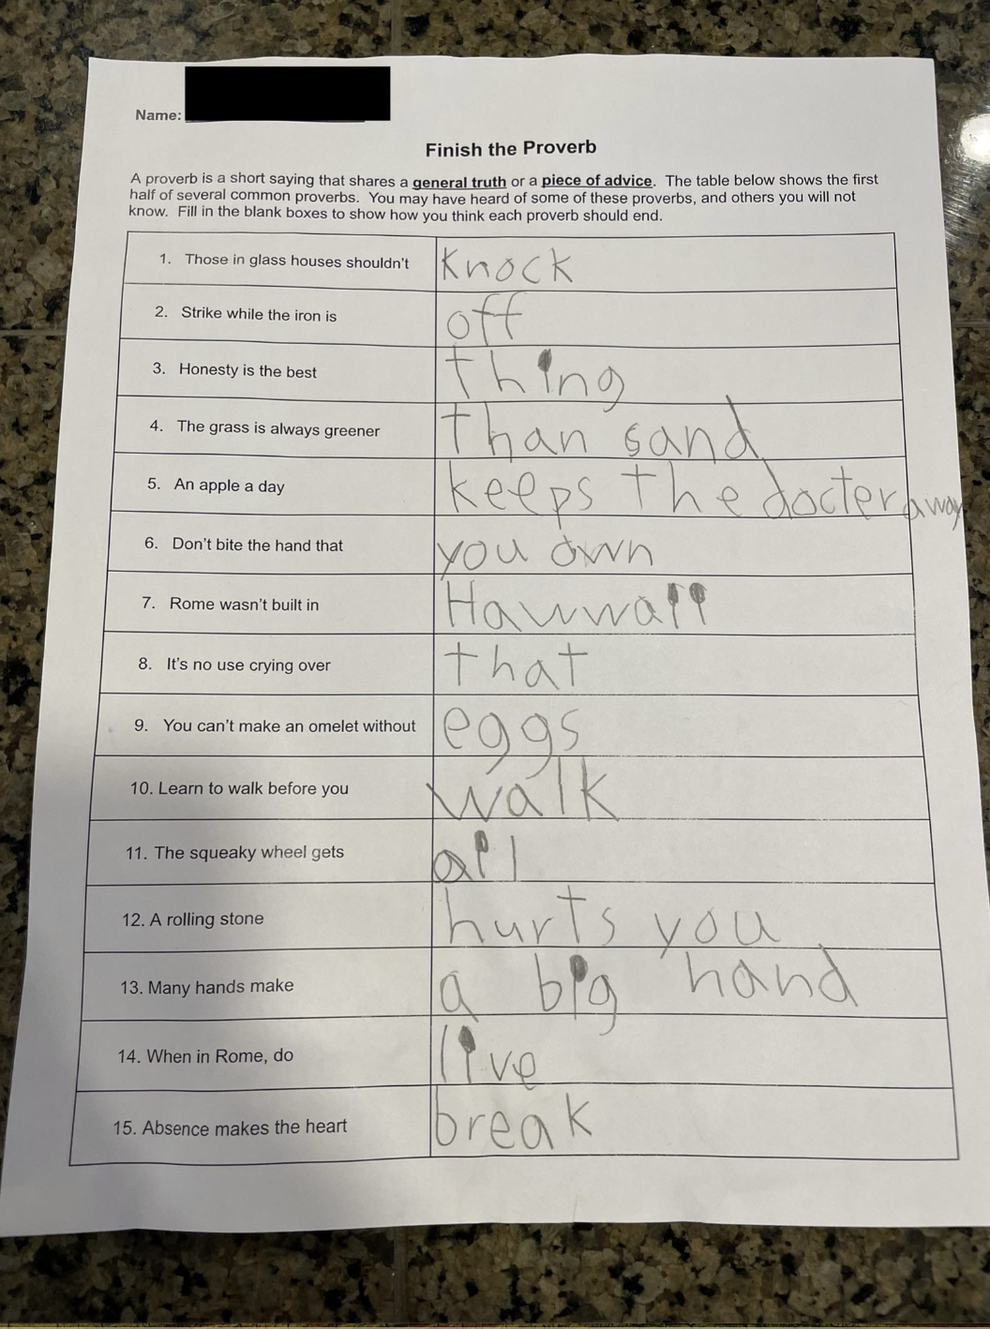 Name:
Finish the Proverb
A proverb is a short saying that shares a general truth or a piece of advice. The table below shows the first
half of several common proverbs. You may have heard of some of these proverbs, and others you will not
know. Fill in the blank boxes to show how you think each proverb should end.
1. Those in glass houses shouldn't knock
2. Strike while the iron is off
3. Honesty is the best thing
4. The grass is always greener than sand
5. An apple a day keeps the docter away
6. Don't bite the hand that you own
7. Rome wasn't built in Hawwaii
8. It's no use crying over that
9. You can't make an omelet without eggs
10. Learn to walk before you walk
11. The squeaky wheel gets
12. A rolling stone hurts you
13. Many hands make a big hand
14. When in Rome, do live
15. Absence makes the heart break